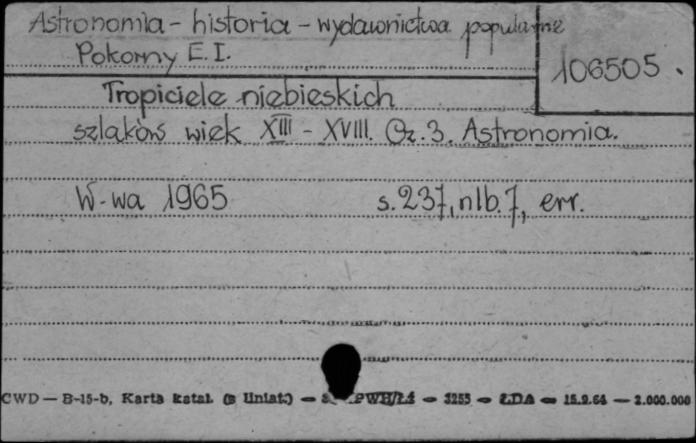 Astronomia - historia - wydawnictwa popularne
Pokorny E. I.
106505.
Tropiciele niebieskich
szlaków wiek XIII - XVIII. Cz. 3. Astronomia.
W-wa 1965 s. 237, nlb. 7, err.
CWD — B-15-b, Karta katal. (z liniat.) — PWH/Łź — 3255 — ŁDA — 15.9.64 — 2.000.000